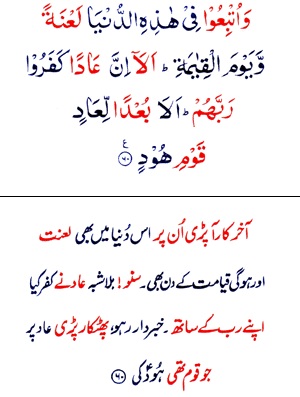 وَاُتْبِعُوْا فِىْ هٰذِهِ الدُّنْيَا لَعْنَةً
وَّيَوْمَ الْقِيٰمَةِ ؕ اَلَاۤ اِنَّ عَادًا كَفَرُوْا
رَبَّهُمْ ؕ اَلَا بُعْدًا لِّعَادٍ
قَوْمِ هُوْدٍ ﴿۶۰﴾ ع
آخر کار آپڑی اُن پر اس دُنیا میں بھی لعنت
اور ہوگی قیامت کے دن بھی۔ سنو! بلاشبہ عاد نے کفر کیا
اپنے رب کے ساتھ۔ خبردار رہو، پھٹکار پڑی عاد پر
جو قوم تھی ہُودؑ کی ﴿۶۰﴾